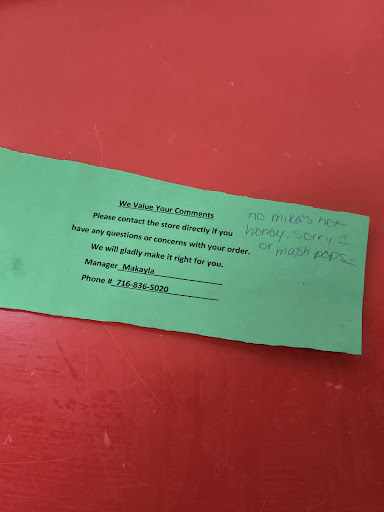 We Value Your Comments
Please contact the store directly if you
have any questions or concerns with your order.
We will gladly make it right for you.
Manager_Makayla
Phone #_716-836-5020
no mike's hot
honey. sorry!!
or mash pops